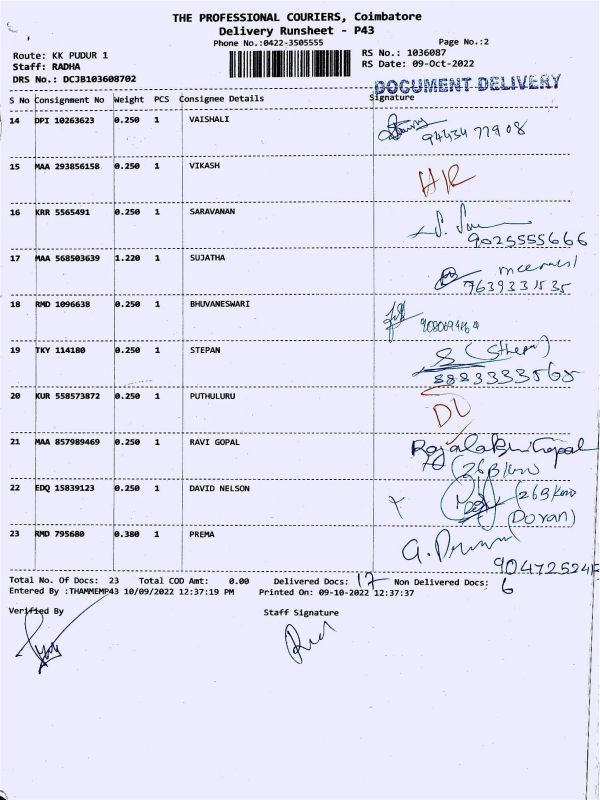 THE PROFESSIONAL COURIERS, Coimbatore
Delivery Runsheet - P43
Phone No.:0422-3505555
Page No.:2
Route: KK PUDUR 1
RS No.: 1036087
Staff: RADHA
RS Date: 09-Oct-2022
DRS No.: DCJB103608702
DOCUMENT DELIVERY
S No Consignment No Weight PCS Consignee Details Signature
14 DPI 10263623 0.250 1 VAISHALI
94434 77908
15 MAA 293856158 0.250 1 VIKASH
16 KRR 5565491 0.250 1 SARAVANAN
9025555666
17 MAA 568503639 1.220 1 SUJATHA
7639331535
18 RMD 1096638 0.250 1 BHUVANESWARI
19 TKY 114180 0.250 1 STEPAN
(Sthepan)
8883333565
20 KUR 558573872 0.250 1 PUTHULURU
DL
21 MAA 857989469 0.250 1 RAVI GOPAL
Rajalakshmi Gopal
22 EDQ 15839123 0.250 1 DAVID NELSON
23 RMD 795680 0.380 1 PREMA
Total No. Of Docs: 23 Total COD Amt: 0.00 Delivered Docs: 17 Non Delivered Docs: 6
Entered By :THAMMEMP43 10/09/2022 12:37:19 PM Printed On: 09-10-2022 12:37:37
Verified By Staff Signature